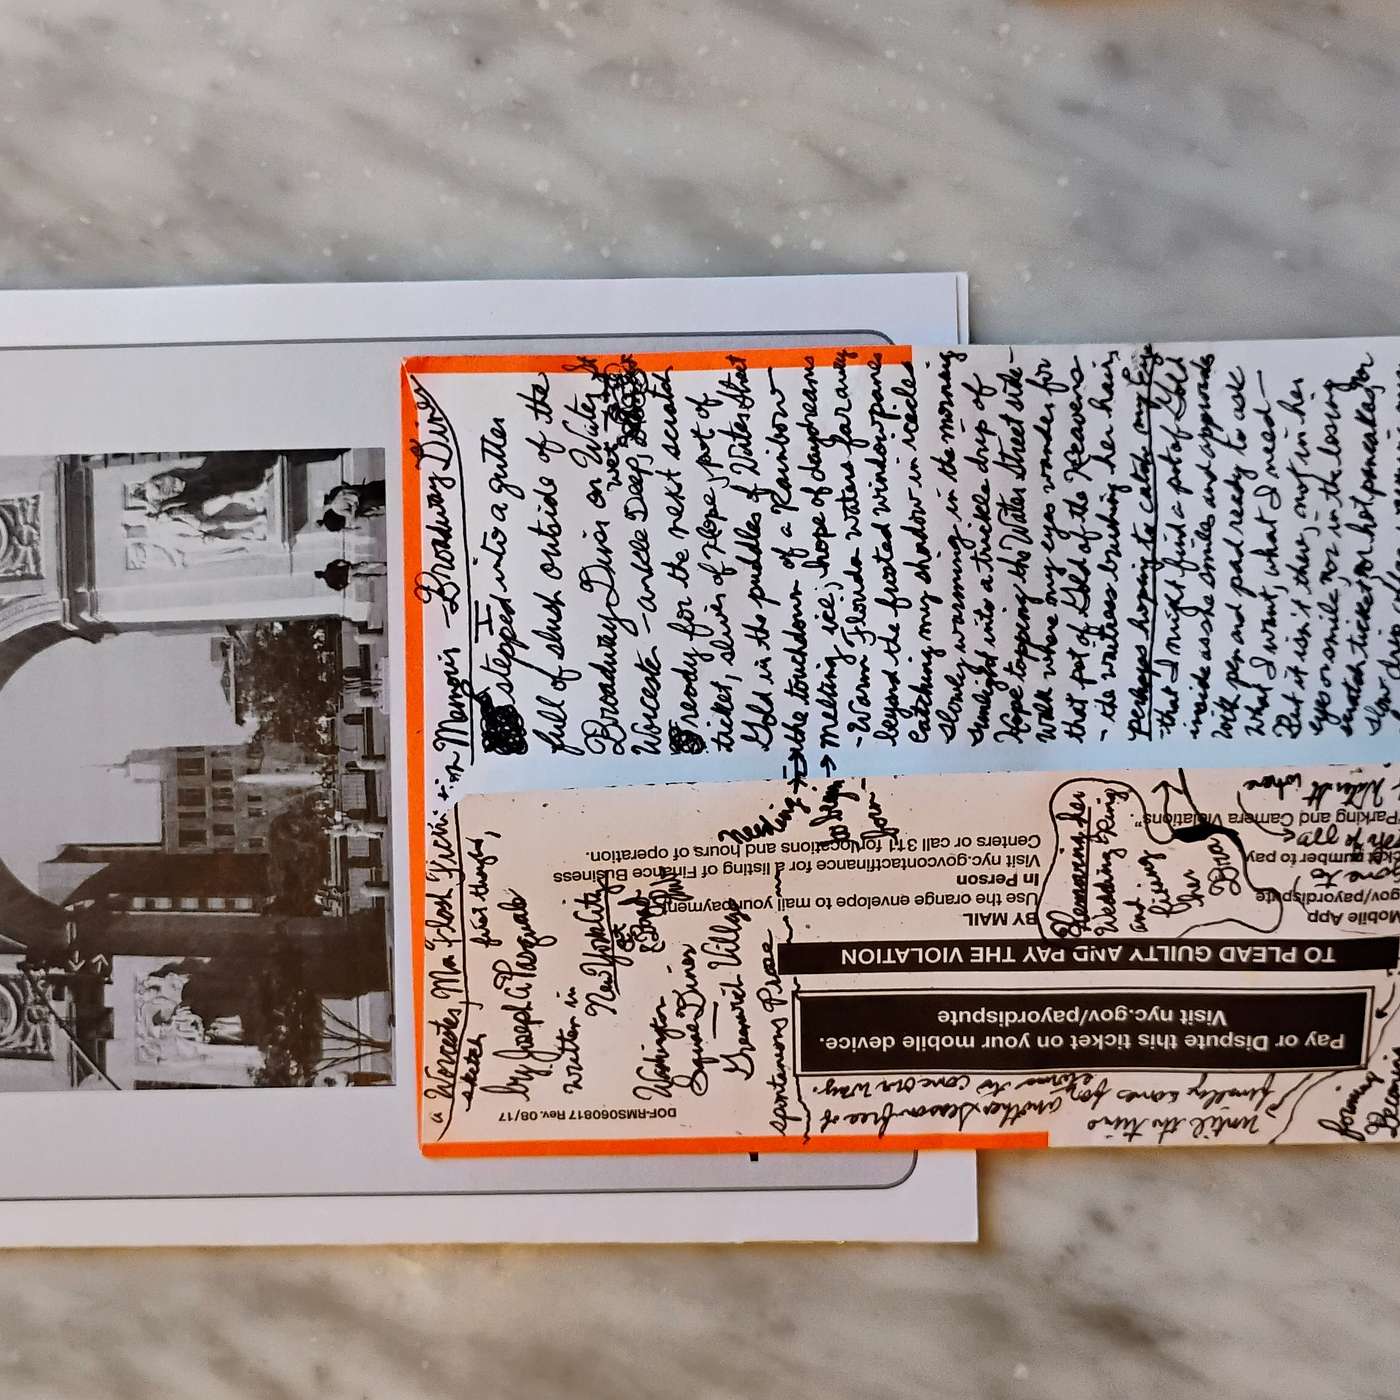 a Worcester, Ma. Flash Fiction in Memoir - Broadway Diner
sketch
first thought,
by Joseph A. Pasquale
written in
New York City
at
Washington
Square Diner
Greenwich Village
spontaneous Prose
I
stepped into a gutter
full of slush outside of the
Broadway Diner on Water St
Worcester - ankle Deep, wet
ready for the next scratch
ticket, sliver of Hope, pot of
Gold in the puddles of Water Street
the touchdown of a Rainbow
melting ice; hope of daydreams
- Warm Florida waters far away
beyond the frosted window panes
Catching my shadow in icicles
slowly warming in the morning
sunlight into a trickle drip of
Hope tapping the Water Street side-
walk where my eyes wander for
that pot of Gold of the Heavens
- the waitress brushing her hair
perhaps hoping to catch my Eye
that I might find a pot of Gold
inside as she smiles and approaches
with pen and pad ready to ask
what I want, what I need-
But it isn't there, not in her
eyes or smile, nor in the losing
scratch ticket, or hot pancakes, for
Removing her
Wedding Ring
and
fixing
her
Bra
until the time
finally comes for
another season free of
to come our way.
forming
DOF-RMS060817 Rev. 08/17
Pay or Dispute this ticket on your mobile device.
Visit nyc.gov/payordispute
TO PLEAD GUILTY AND PAY THE VIOLATION
BY MAIL
Use the orange envelope to mail your payment
In Person
Visit nyc.govcontactfinance for a listing of Finance Business
Centers or call 311 for locations and hours of operation.
Mobile App
gov/payordispute
number to pay
Parking and Camera Violations".